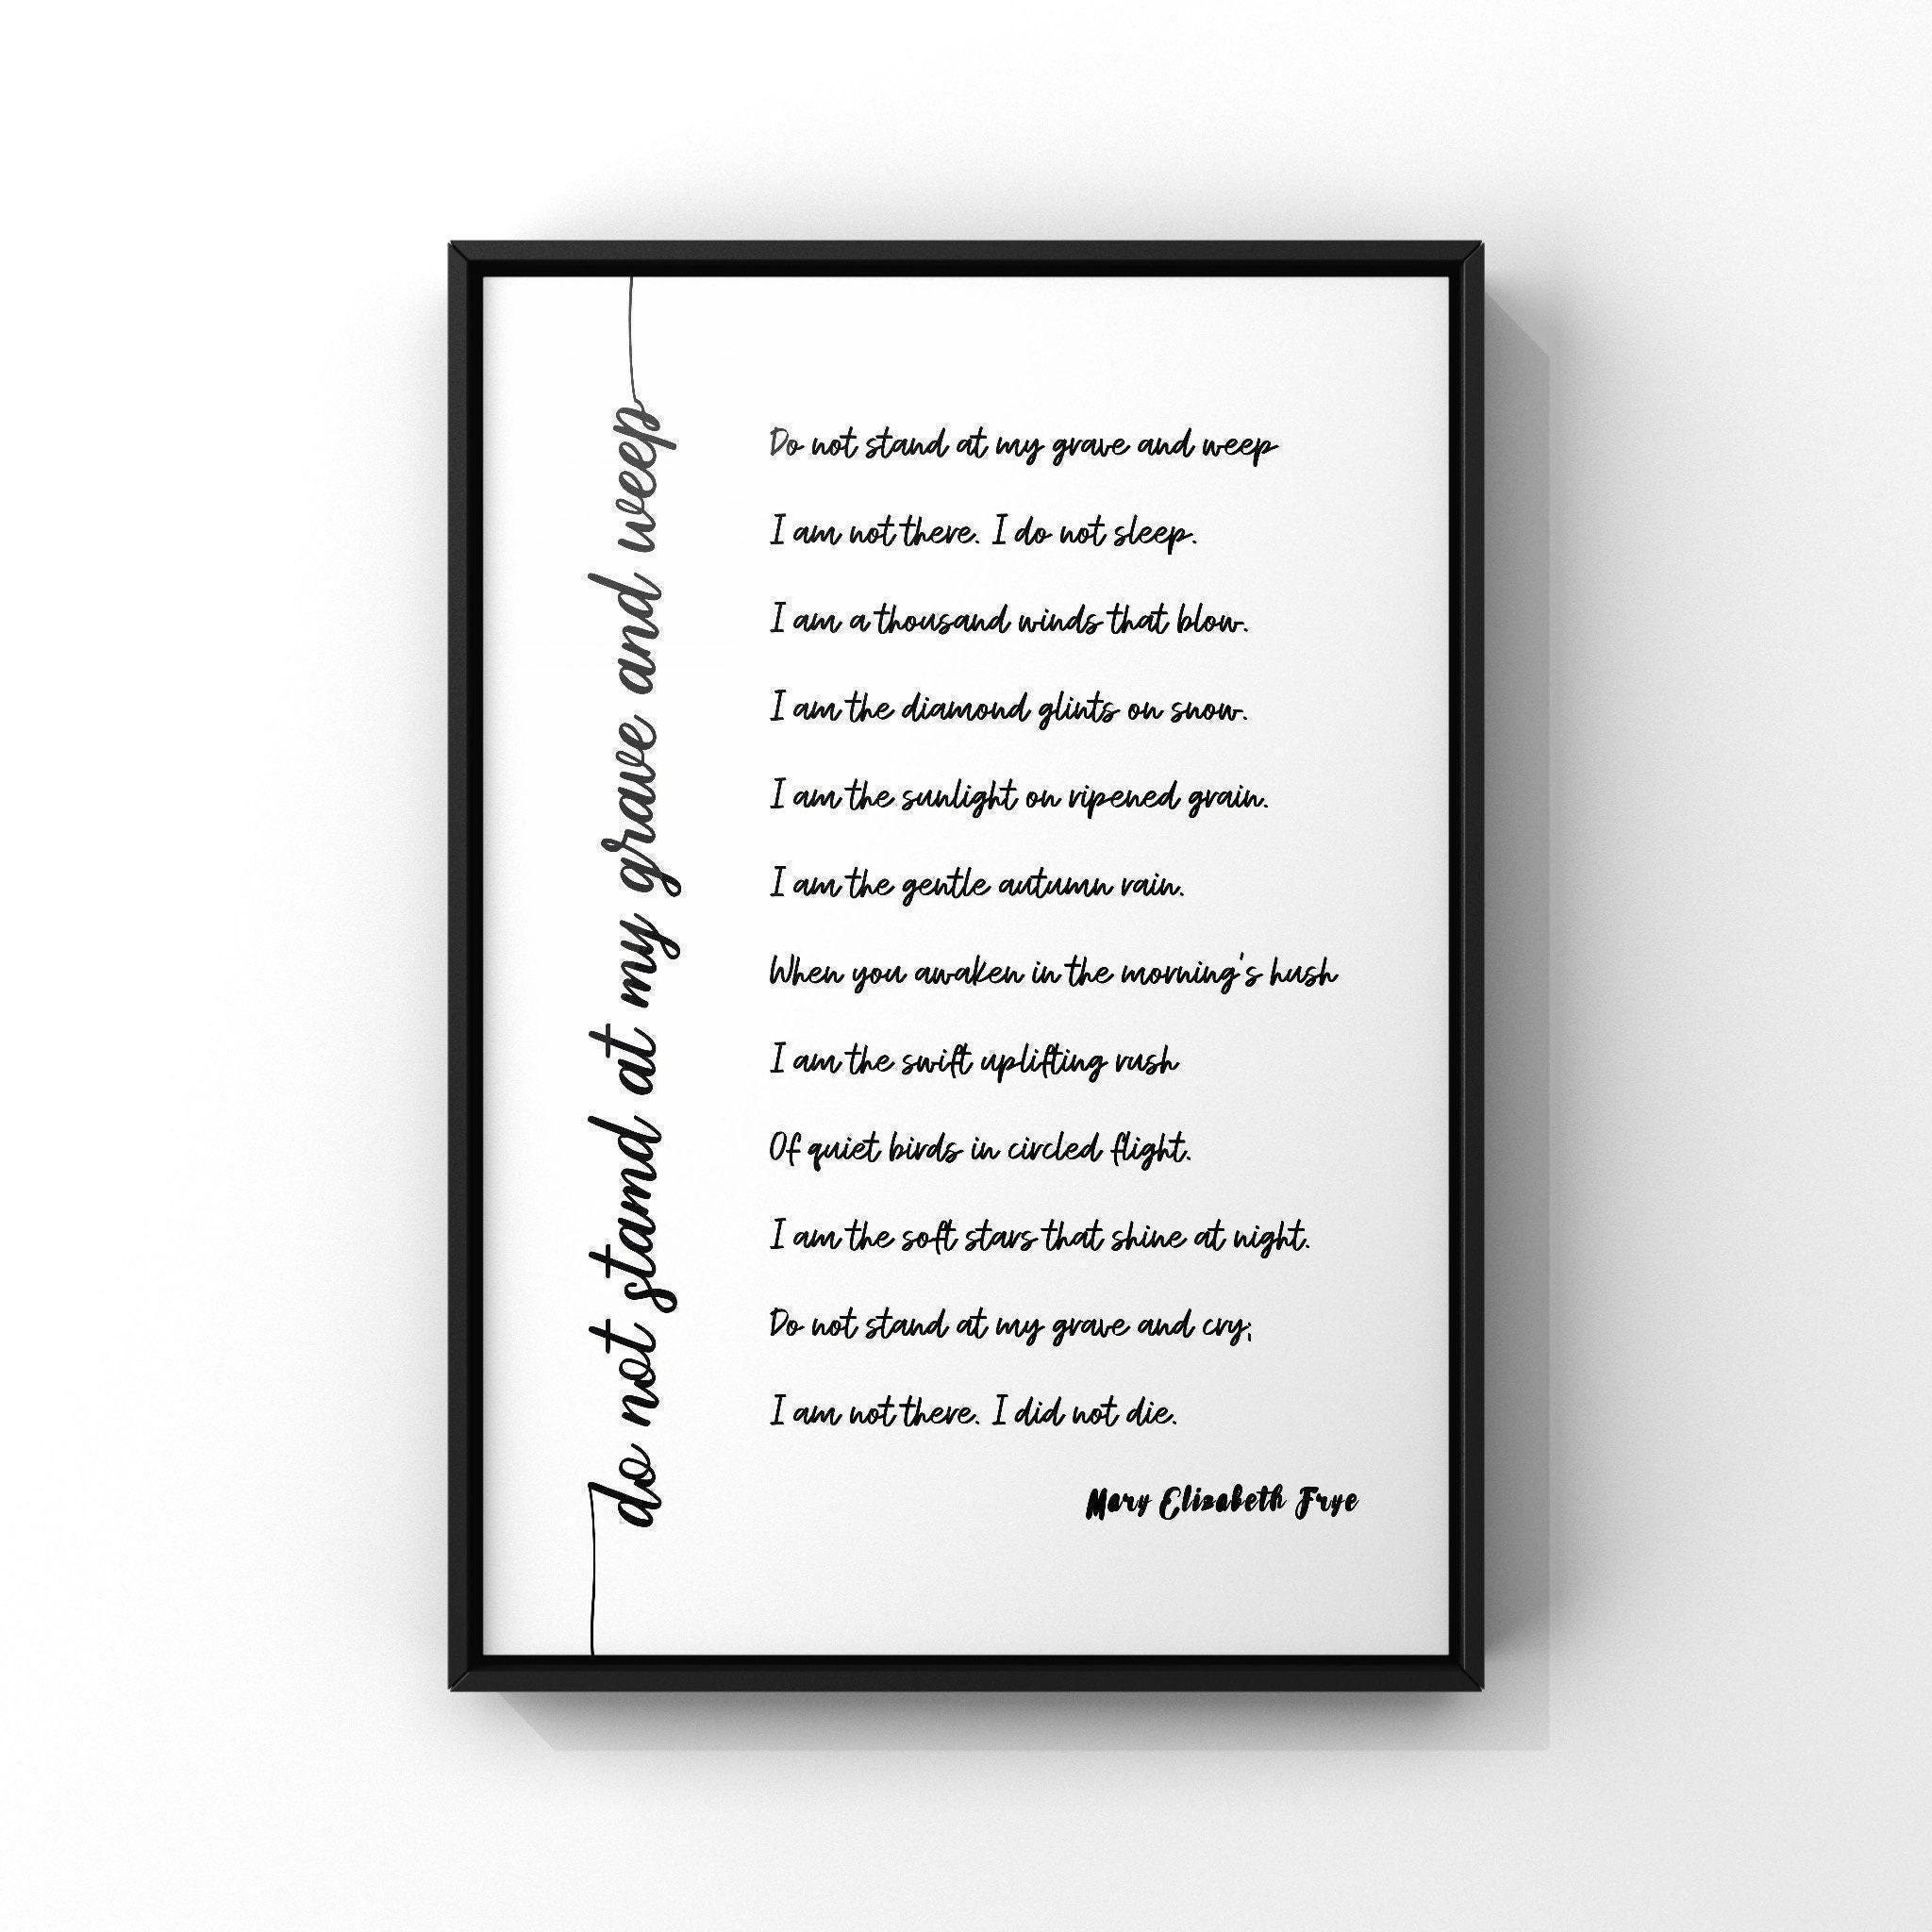 do not stand at my grave and weep
Do not stand at my grave and weep
I am not there. I do not sleep.
I am a thousand winds that blow.
I am the diamond glints on snow.
I am the sunlight on ripened grain.
I am the gentle autumn rain.
When you awaken in the morning's hush
I am the swift uplifting rush
Of quiet birds in circled flight.
I am the soft stars that shine at night.
Do not stand at my grave and cry;
I am not there. I did not die.
Mary Elizabeth Frye